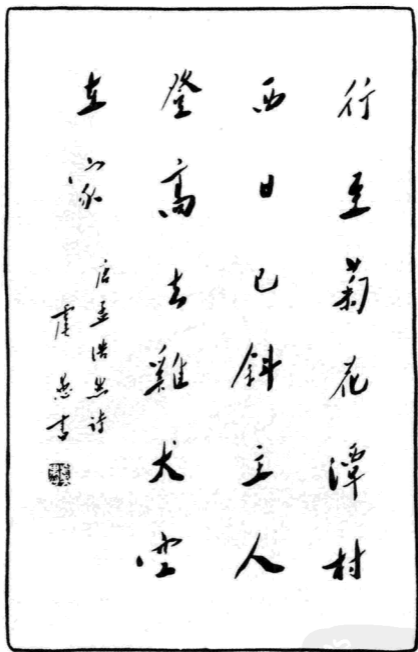 行至菊花潭村
西日已斜主人
登高去雞犬空
在家
唐孟浩然诗
虞愚書